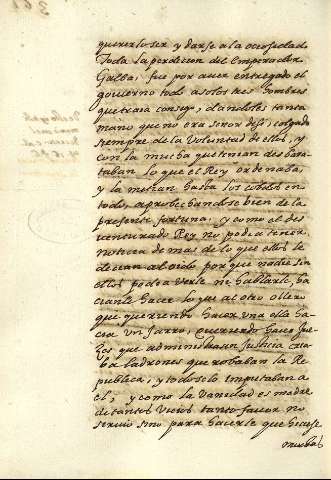 quererlo ser y darse a la ociosidad
Toda la perdicion del Emperador
Galba, fue por auer entregado el
gouierno todo a solos tres hombres
que traia consigo, dandoles tanta
mano que no era señor desi, colgado
siempre de la Voluntad de ellos, y
con la mucha que tenian desbara
taban lo que el Rey ordenaba,
y la metian hasta los cobdos en
todo, aprobechandose bien de la
presente fortuna, y como el des
uenturado Rey no podia tener
noticia de mas de lo que ellos le
decian al oido por que nadie sin
ellos podia Verle ni hablarle, ha
cianle hacer lo que al otro ollero
que queriendo hacer una olla ha
cia un Jarro, queriendo hacer Jue
zes que administrasen Justicia cria
ba ladrones que robaban la Re
publica, y todo se lo imputaban a
el, y como la Vanidad es madre
de tantos Vicios tanto fauor no
seruio sino para hacerle que hiciese
muchas